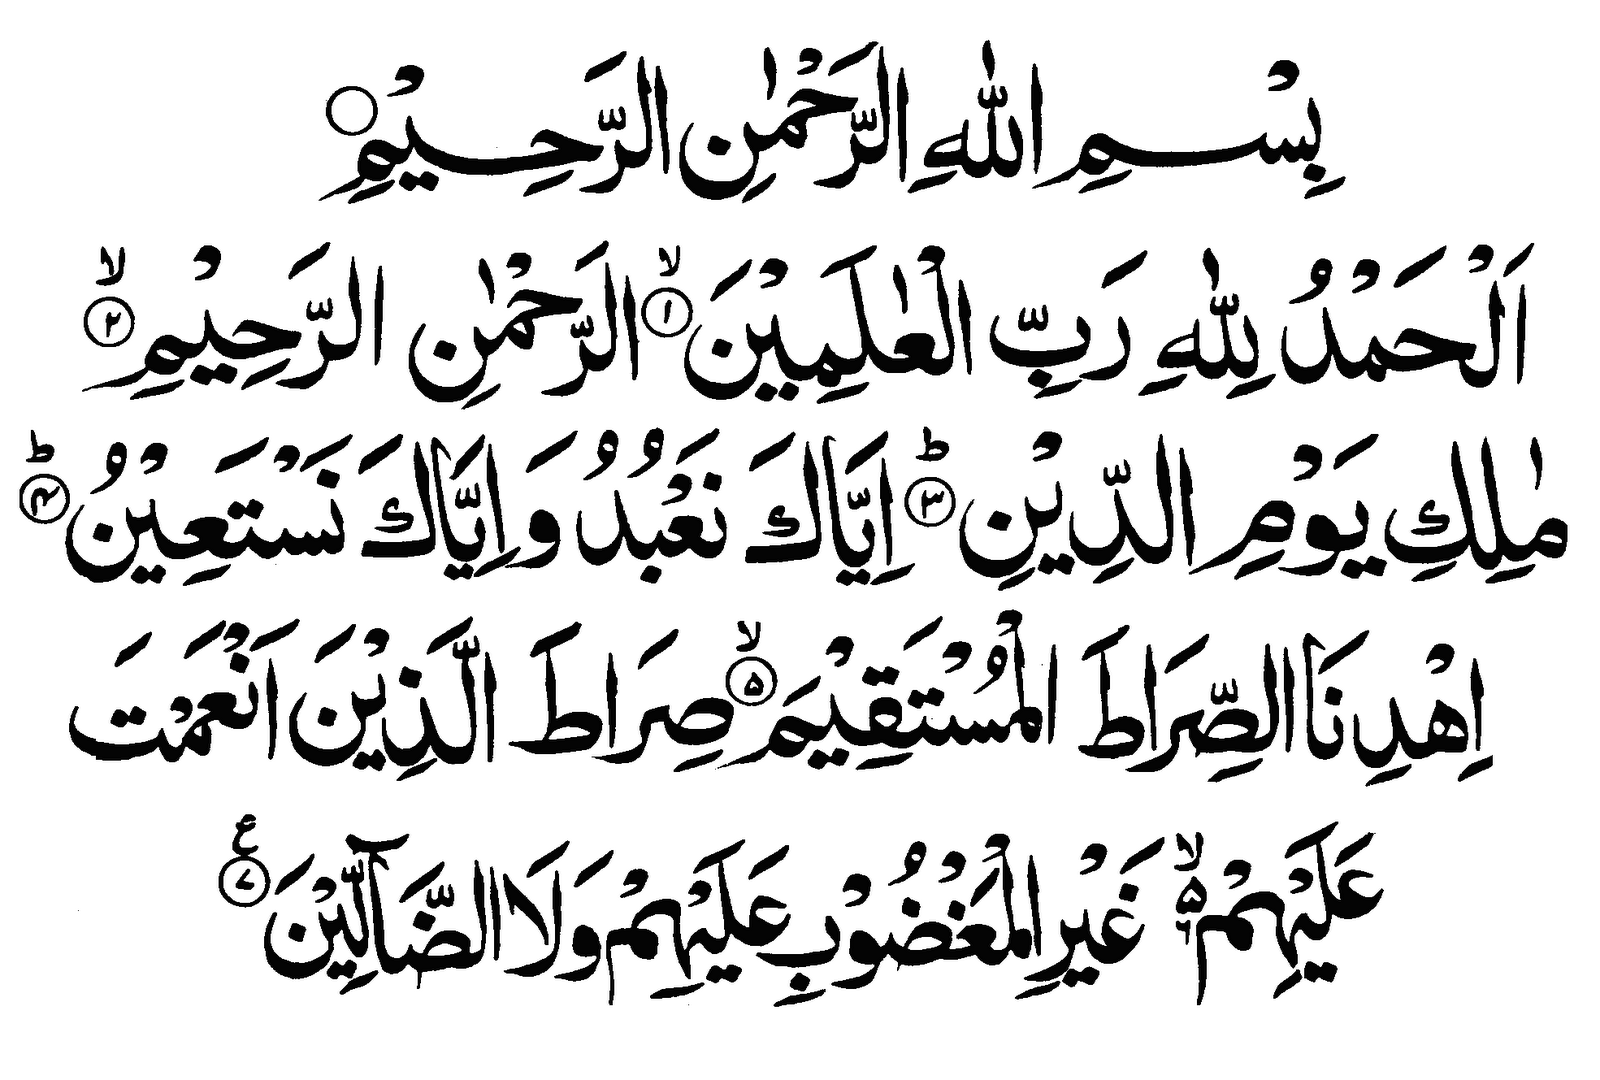 بِسْمِ اللّٰهِ الرَّحْمٰنِ الرَّحِيْمِ ۝
اَلْحَمْدُ لِلّٰهِ رَبِّ الْعٰلَمِيْنَ ۙ﴿۱﴾ الرَّحْمٰنِ الرَّحِيْمِ ۙ﴿۲﴾
مٰلِكِ يَوْمِ الدِّيْنِ ؕ﴿۳﴾ اِيَّاكَ نَعْبُدُ وَاِيَّاكَ نَسْتَعِيْنُ ؕ﴿۴﴾
اِهْدِنَا الصِّرَاطَ الْمُسْتَقِيْمَ ۙ﴿۵﴾ صِرَاطَ الَّذِيْنَ اَنْعَمْتَ
عَلَيْهِمْ ۙ۵ ۶ غَيْرِ الْمَغْضُوْبِ عَلَيْهِمْ وَلَا الضَّآلِّيْنَ ﴿۷﴾ ع